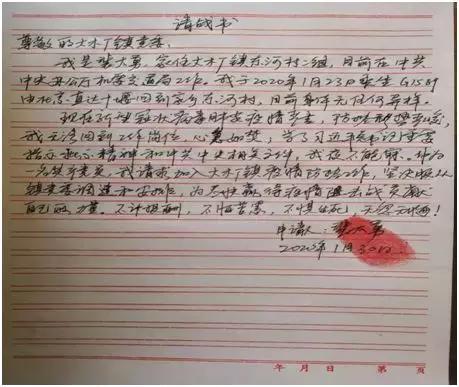 请战书
尊敬的大木厂镇党委：
我是 大军，家住大木厂镇东河村二组，目前在中共
中央办公厅机要交通局工作。我于2020年1月23日乘坐G1589
由北京直达十堰回到家乡东河村，目前身体无任何异样。
现在新型冠状病毒肺炎疫情严重，防控
我无法回到工作岗位，心急如焚，学习近平总书记重要
指示批示精神和中共中央相关文件，我在不能 ，作为
一名共产党员，我请求加入大木厂镇疫情防控工作，坚决服从
镇党委调遣和安排，为尽快赢得疫情阻击战贡献
自己的力量。不计报酬，不怕苦累，不惧生死，无怨无悔！
申请人： 大军
2020年1月30日
年 月 日 第 页